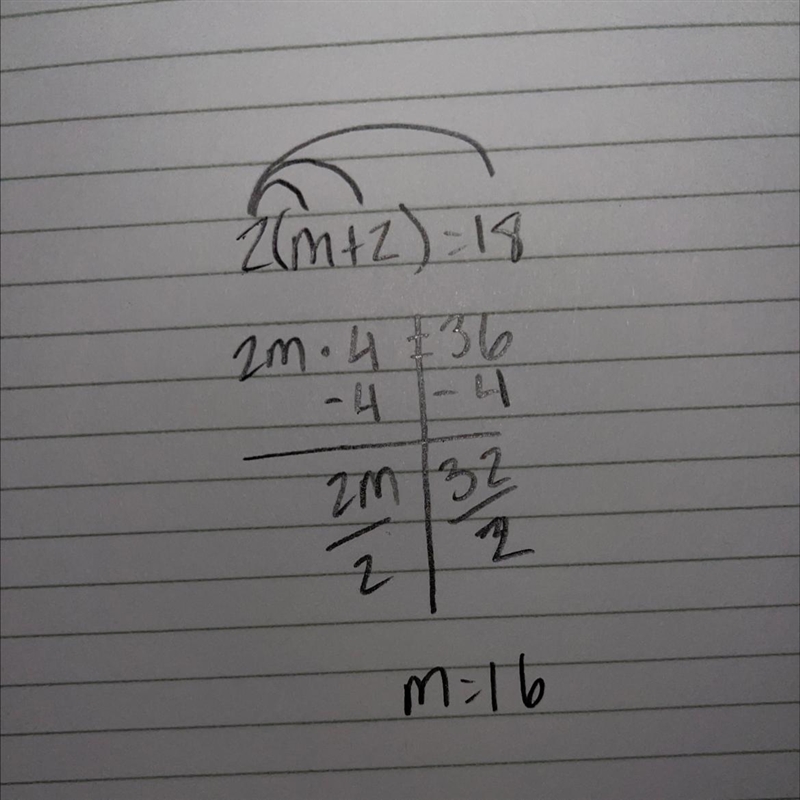 2(m+2)=18
2m · 4 = 36
-4 | -4
2m/2 | 32/2
m=16